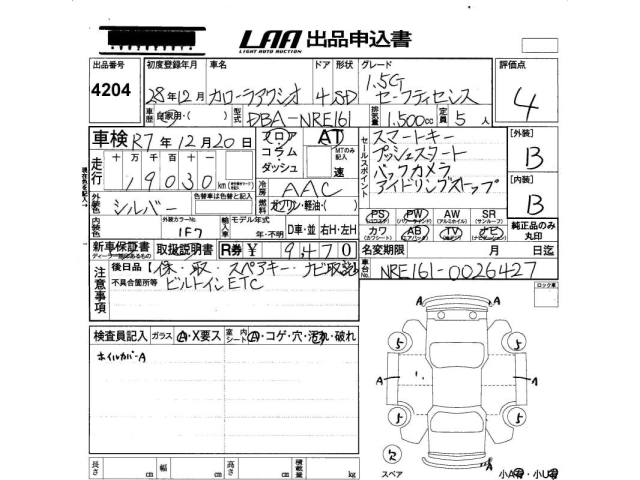 LAA 出品申込書
LIGHT AUTO AUCTION
出品番号 初度登録年月 車名 ドア 形状 グレード 評価点
4204 28年12月 カローラアクシオ 4 SD 1.5G セーフティセンス 4
車歴 自家用・( ) 型式 DBA-NRE161 排気量 1,500cc 定員 5人
車検 R7年12月20日 フロア コラム・ダッシュ AT MTのみ記入 速
セールスポイント スマートキー
プッシュスタート
バックカメラ
アイドリングストップ
[外装] B
[内装] B
走行 十万千百十一
19030km
冷房 AAC
外装色 シルバー 色替車は色替と記入 燃料 ガソリン・軽油・( )
PS PW AW SR
(パワーステアリング) (パワーウインド) (アルミホイル) (サンルーフ)
カワ AB TV ナビ
(カワシート) (エアバッグ) (ナビゲーション)
純正品のみ丸印
内装色 外装カラーNo. 1F7 輸入車 モデル年式 年・不明 D車・並 右H・左H
新車保証書 取扱説明書 R券 ¥ 9,470 名変期限 月 日迄
ディーラー印のあるもの
車台No. NRE161-0026427
注意事項 後日品【保・取・スペアキー・ナビ取説
不具合箇所等 ビルトインETC
ロック車
検査員記入 ガラス A・X要ス 室内シート A・コゲ・穴・汚れ・破れ
ホイルカバーA
5 5
A A
5 5
A
スペア 小A 小U
長さ cm 幅 cm 高さ cm 積載量 kg